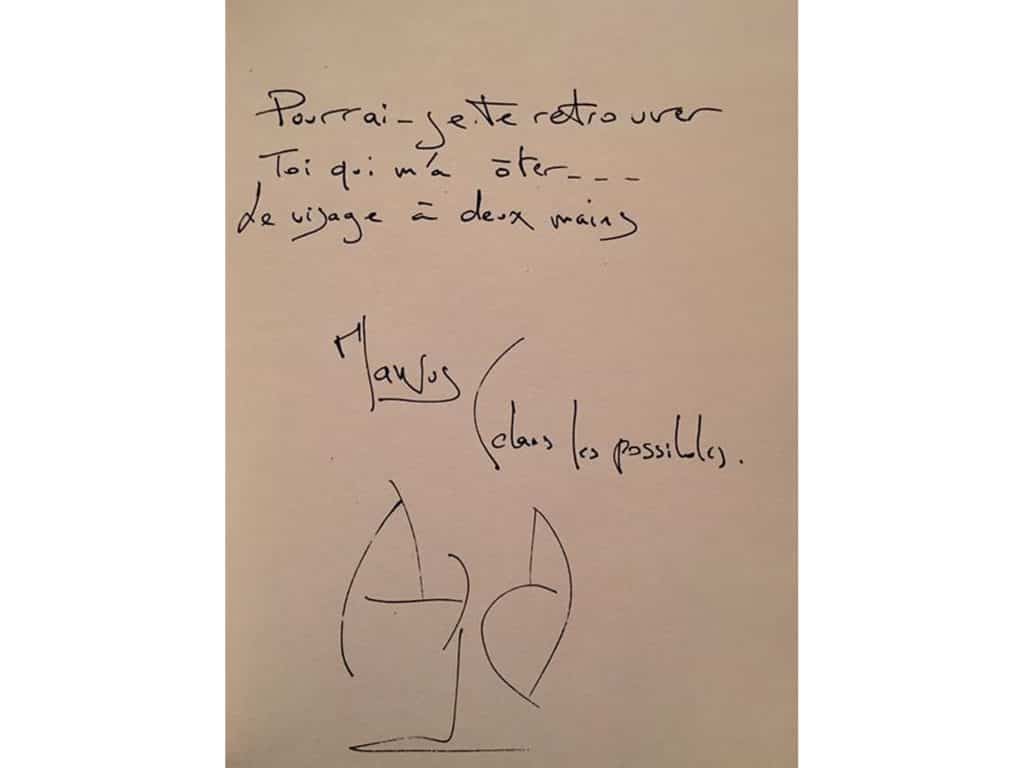 Pourrai-je te retrouver
Toi qui m'a ôter---
Le visage à deux mains
dans les possibles.